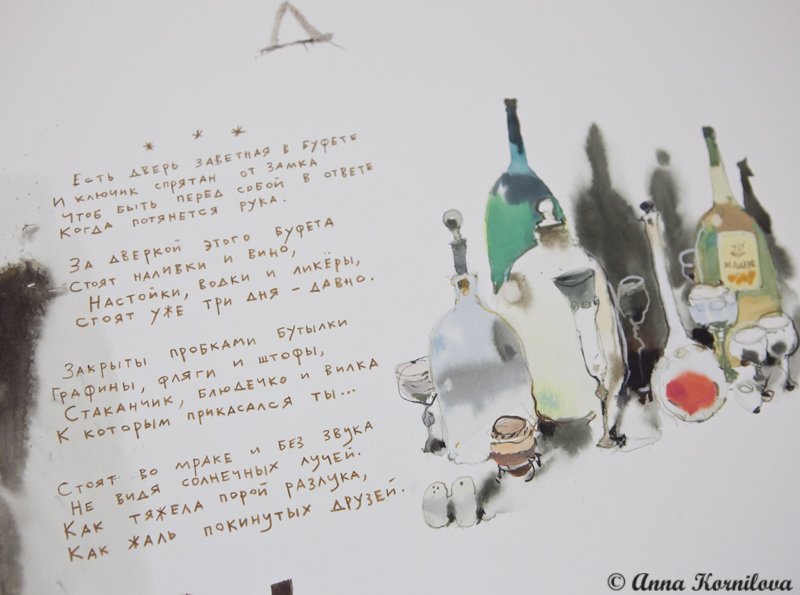 * * *
Есть дверь заветная в буфете
И ключик спрятан от замка
Чтоб быть перед собой в ответе
Когда потянется рука.
За дверкой этого буфета
Стоят наливки и вино,
Настойки, водки и ликёры,
Стоят уже три дня – давно.
Закрыты пробками бутылки
Графины, фляги и штофы,
Стаканчик, блюдечко и вилка
К которым прикасался ты...
Стоят во мраке и без звука
Не видя солнечных лучей.
Как тяжела порой разлука,
Как жаль покинутых друзей.
© Anna Kornilova